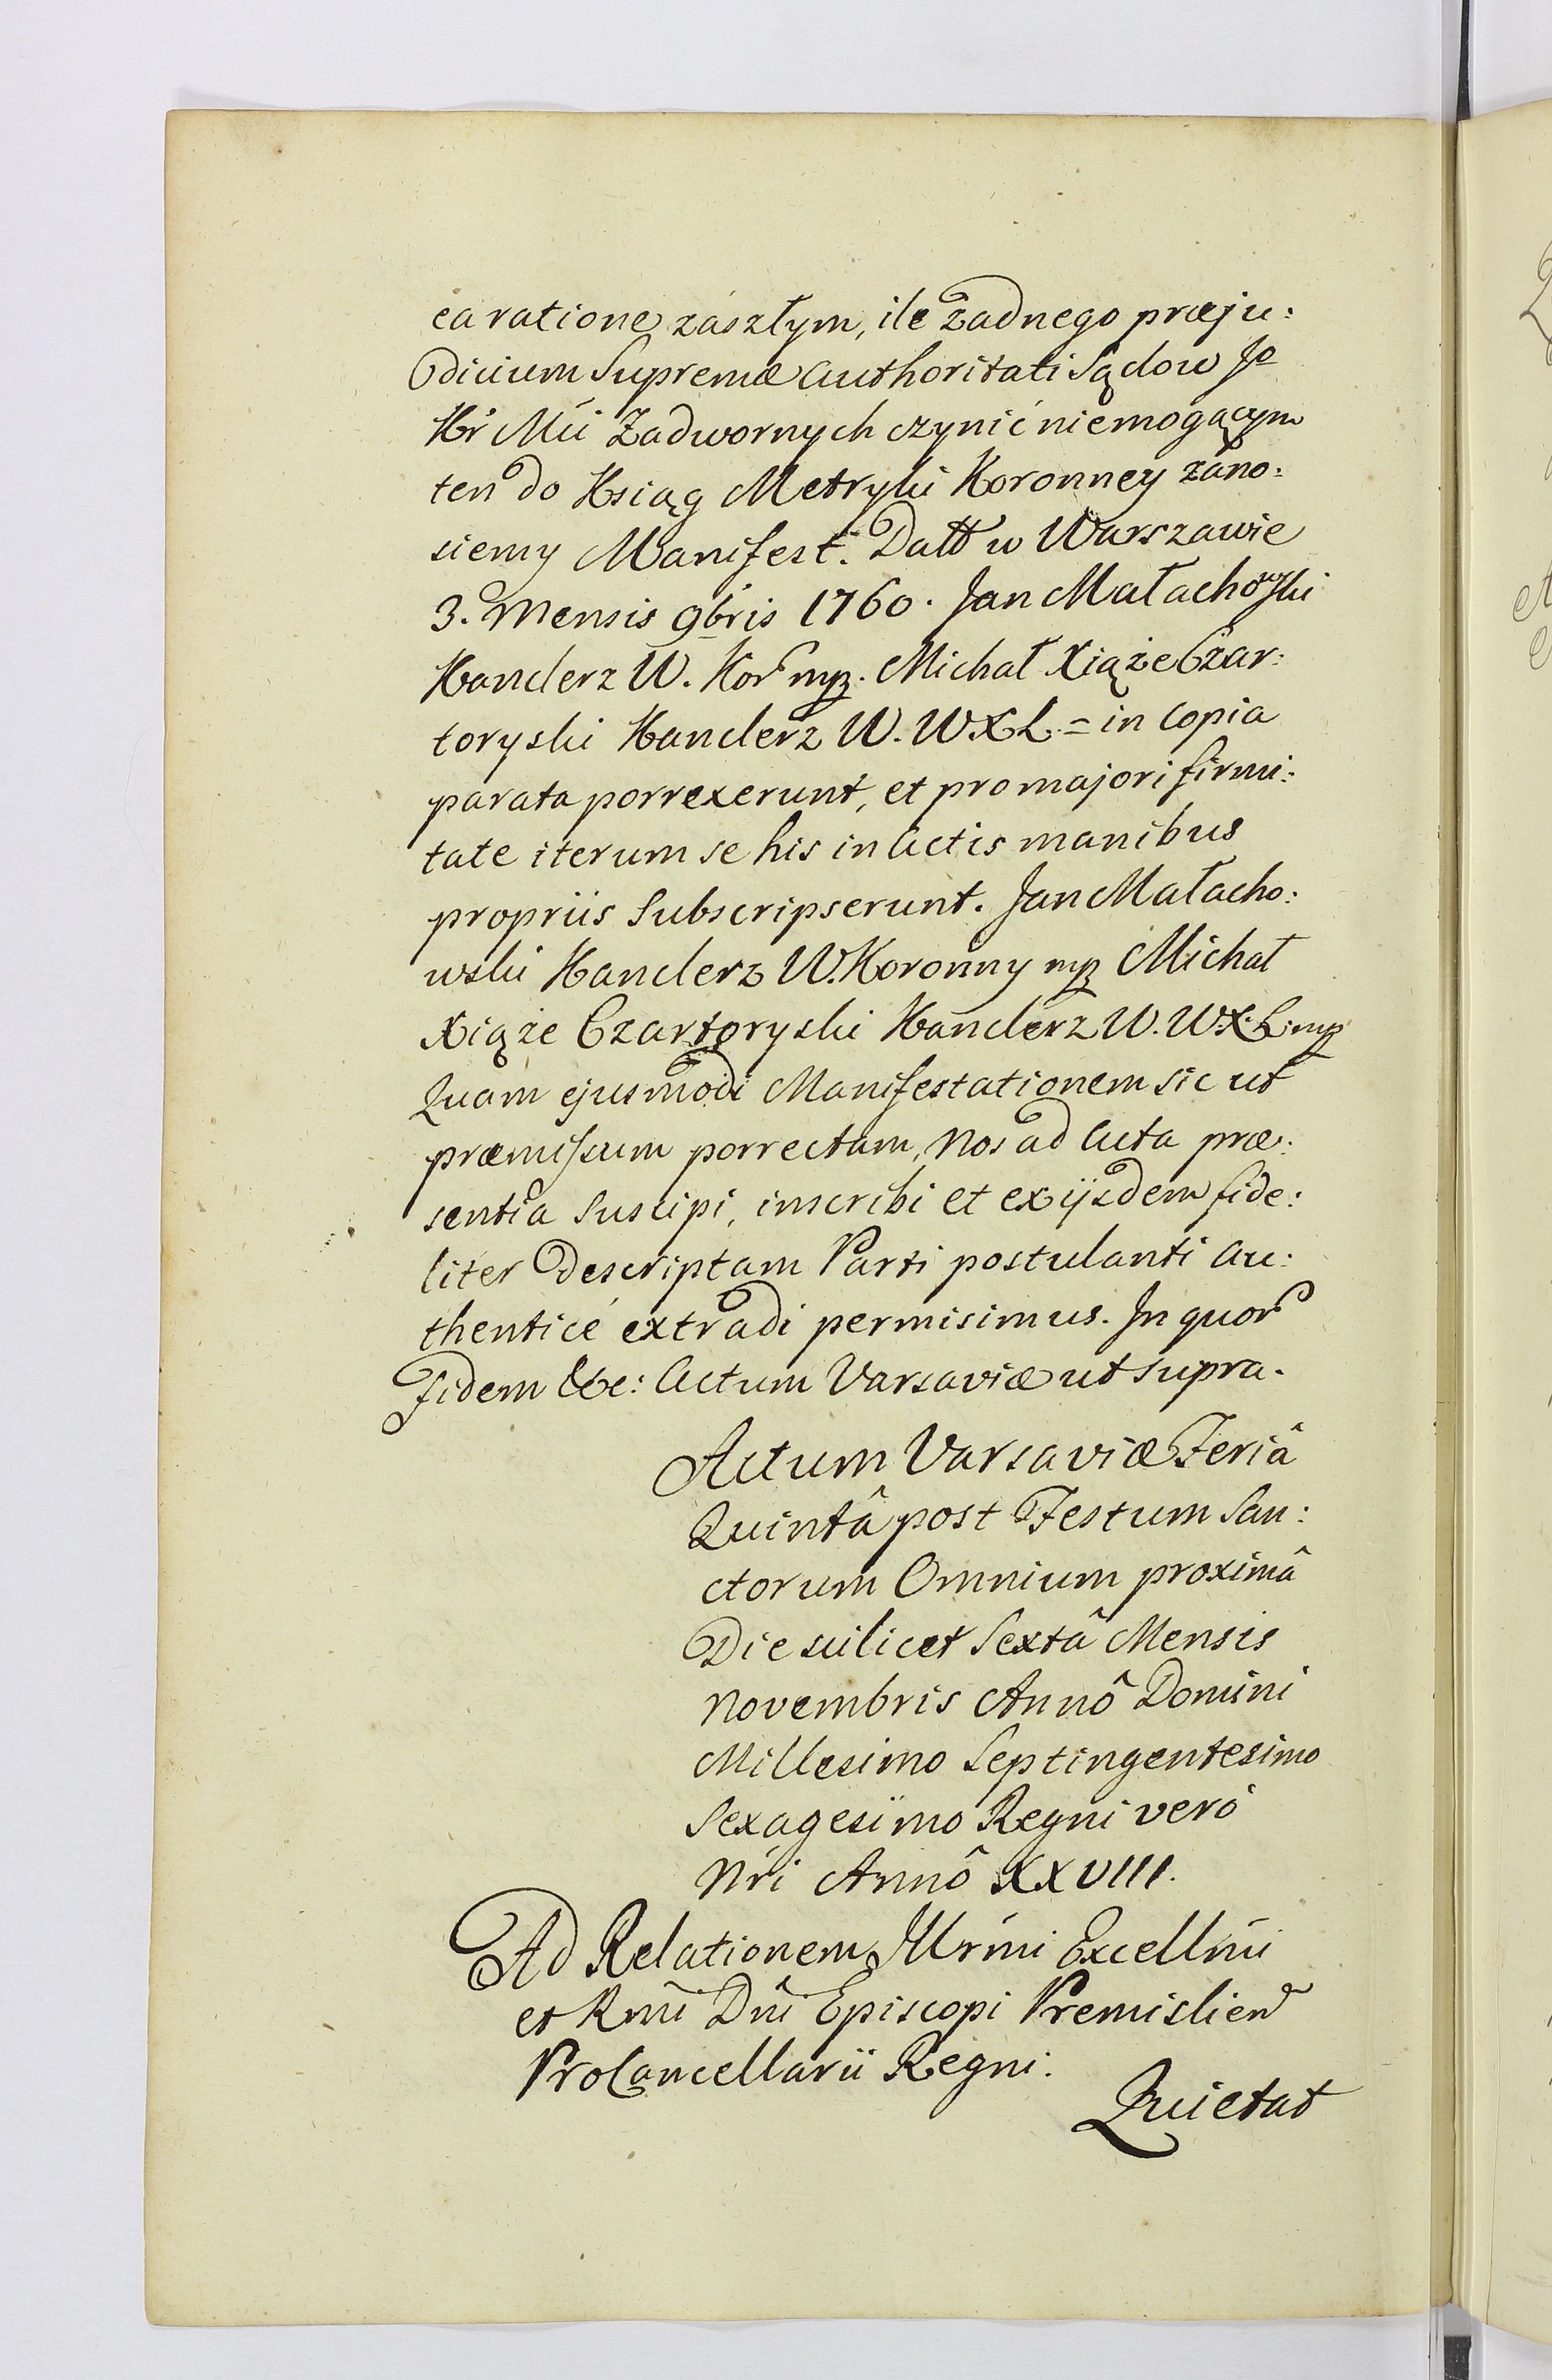 ea ratione zaszłym, ile żadnego præju:
dicium Supremæ Authoritati Sądow Jo
Kr Mci Zadwornych czynić niemogącym
ten do Ksiąg Metryki Koronney zano:
siemy Manifest. Datt w Warszawie
3. Mensis 9bris 1760. Jan Małachowski
Kanclerz W. Kor mpz. Michał Xiąże Czar:
toryski Kanclerz W. W X L = in Copia
parata porrexerunt, et pro majori firmi:
tate iterum se his in Actis manibus
propriis Subscripserunt. Jan Małacho:
wski Kanclerz W. Koronny mpz Michał
Xiąże Czartoryski Kanclerz W. W. X. L. mpz
Quam ejusmodi Manifestationem sic ut
præmissum porrectam, Nos ad Acta præ:
sentia Suscipi, inscribi et ex ijsdem fide:
liter descriptam Parti postulanti Au:
thenticé extradi permisimus. In quor
fidem &c: Actum Varsaviæ ut supra.
Actum Varsaviæ Feriâ
Quintâ post Festum San:
ctorum Omnium proximâ
Die scilicet Sextâ Mensis
Novembris Annô Domini
Millesimo Septingentesimo
Sexagesimo Regni veró
Nri Annô XXVIII.
Ad Relationem Illrmi Excellmi
et Rmi Dni Episcopi Premislien
ProCancellarii Regni:
Quietat